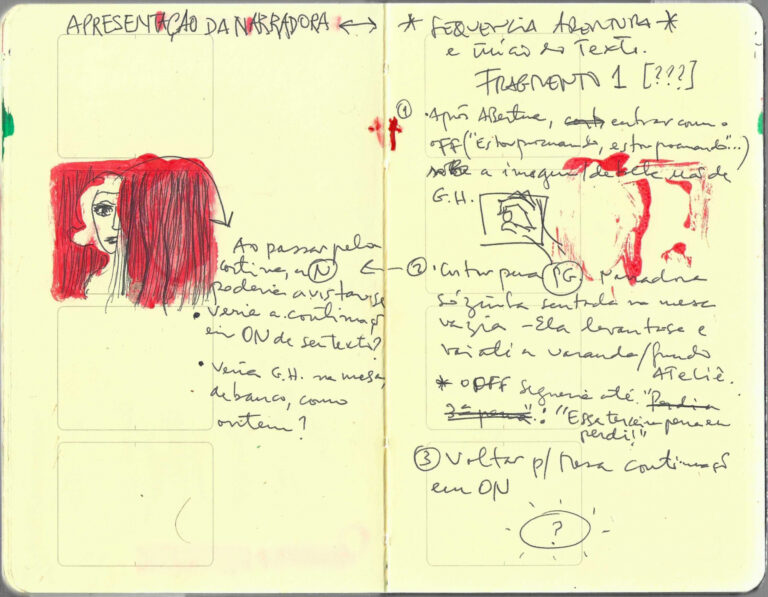 APRESENTAÇÃO DA NARRADORA ↔
Ao passar pela
cortina, a (N)
poderia avistar-se
• veria a continuaçã
em ON do seu texto?
• veria G.H. na mesa,
de branco, como
ontem?
* SEQUENCIA ABERTURA *
e início do texto.
FRAGMENTO 1 [???]
① • Após Abertura, entrar com o
OFF ("Estou procurando, estou procurando"...)
sobre a imagem de G.H.
② • Cortar para (PG) Narradora
sózinha sentada na mesa
vazia – Ela levanta-se e
vai até a varanda/fundo
ATELIÊ.
* o OFF seguiria até "Perdi a
3ª perna": "Essa terceira perna eu
perdi!"
③ Voltar p/ Mesa continuaçã
em ON
?